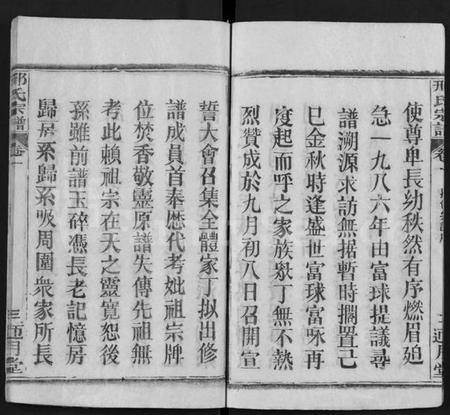 使尊卑長幼秩然有序燃眉迫
急一九八六年由富球提議尋
譜溯源求訪無据暫時擱置己
巳金秋時逢盛世富球富咏再
度起而呼之家族衆丁無不熱
烈贊成於九月初八日召開宣
誓大會召集全體家丁拟出修
譜成員首奉歴代考妣祖宗牌
位焚香敬靈原譜失傳先祖無
考此賴祖宗在天之靈寬恕後
孫雖前譜玉碎憑長老記憶房
歸房系歸系吸周圍衆家所長
邢氏宗譜
卷一
三
邢氏宗譜
卷一
二